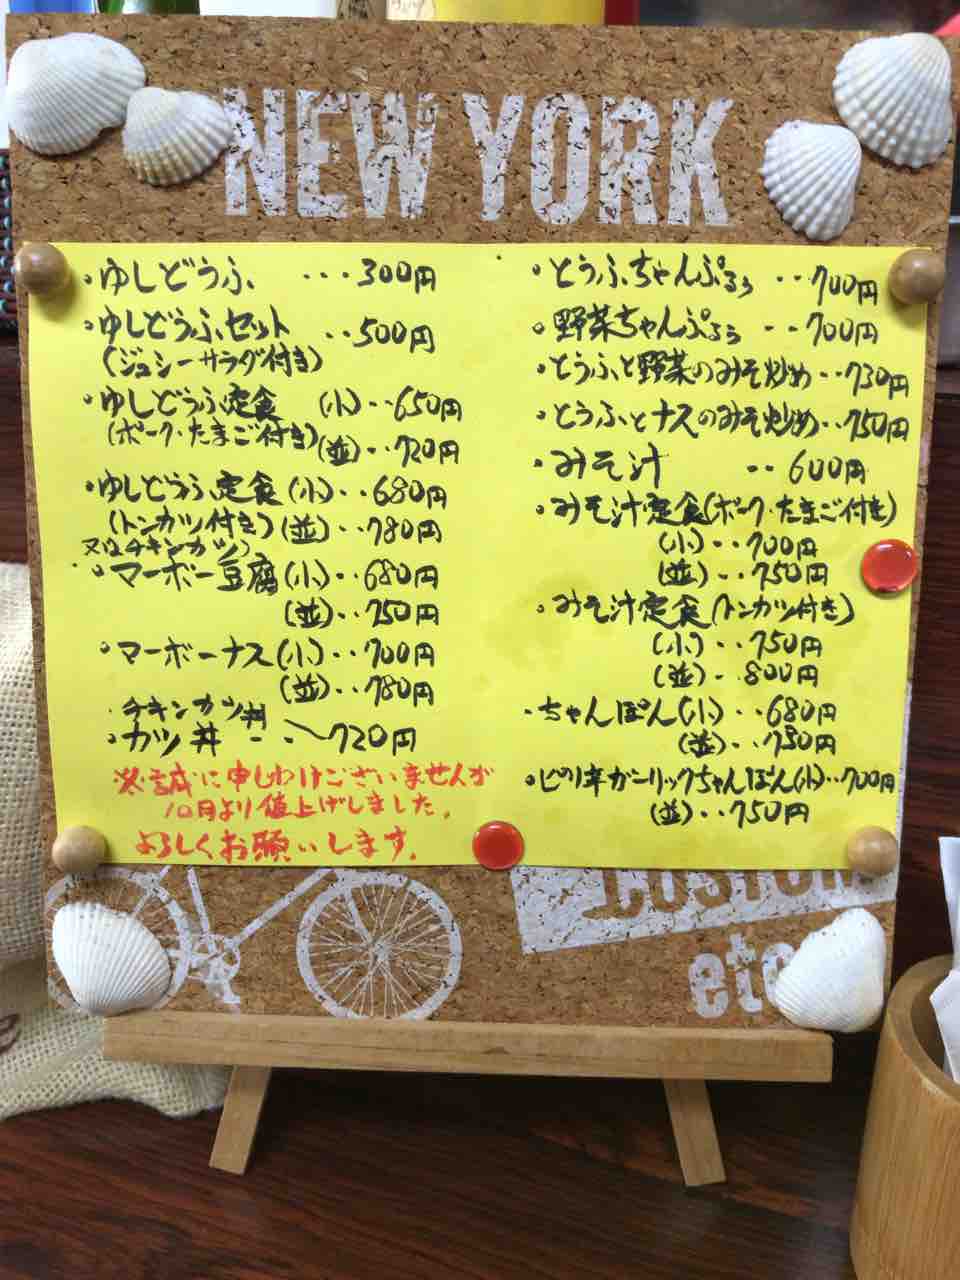 NEW YORK
・ゆしどうふ ・・・300円
・ゆしどうふセット ・・500円
(ジュシーサラダ付き)
・ゆしどうふ定食 (小)・・650円
(ポーク・たまご付き)(並)・・720円
・ゆしどうふ定食(小)・・680円
(トンカツ付き)(並)・・780円
又はチキンカツ)
・マーボー豆腐(小)・・680円
(並)・・750円
・マーボーナス(小)・・700円
(並)・・780円
・チキンカツ丼
・カツ丼 -・・〜720円
※誠に申しわけございませんが
10月より値上げしました。
よろしくお願いします。
・とうふちゃんぷるぅ ・・700円
・野菜ちゃんぷるぅ ・・700円
・とうふと野菜のみそ炒め・・730円
・とうふとナスのみそ炒め・・750円
・みそ汁 ・・600円
・みそ汁定食(ポーク・たまご付き)
(小)・・700円
(並)・・750円
・みそ汁定食(トンカツ付き)
(小)・・750円
(並)・・800円
・ちゃんぽん(小)・・680円
(並)・・730円
・ピリ辛ガーリックちゃんぽん(小)・・700円
(並)・・750円
etc